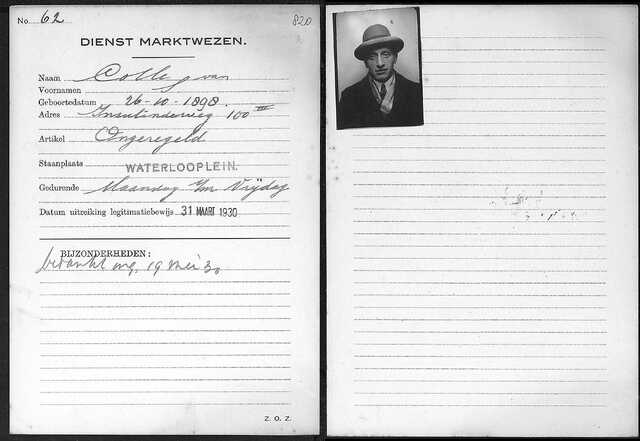 No. 62 820
DIENST MARKTWEZEN.
Naam Colle, J van
Voornamen
Geboortedatum 26-10-1898.
Adres Insulindeweg 100 III
Artikel Ongeregeld
Staanplaats WATERLOOPLEIN.
Gedurende Maandag t/m Vrijdag
Datum uitreiking legitimatiebewijs 31 MAART 1930
BIJZONDERHEDEN:
bedankt ing. 19 Mei 30
Z. O. Z.